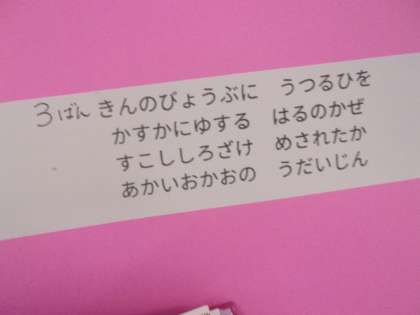 3ばん きんのびょうぶに うつるひを
かすかにゆする はるのかぜ
すこししろざけ めされたか
あかいおかおの うだいじん